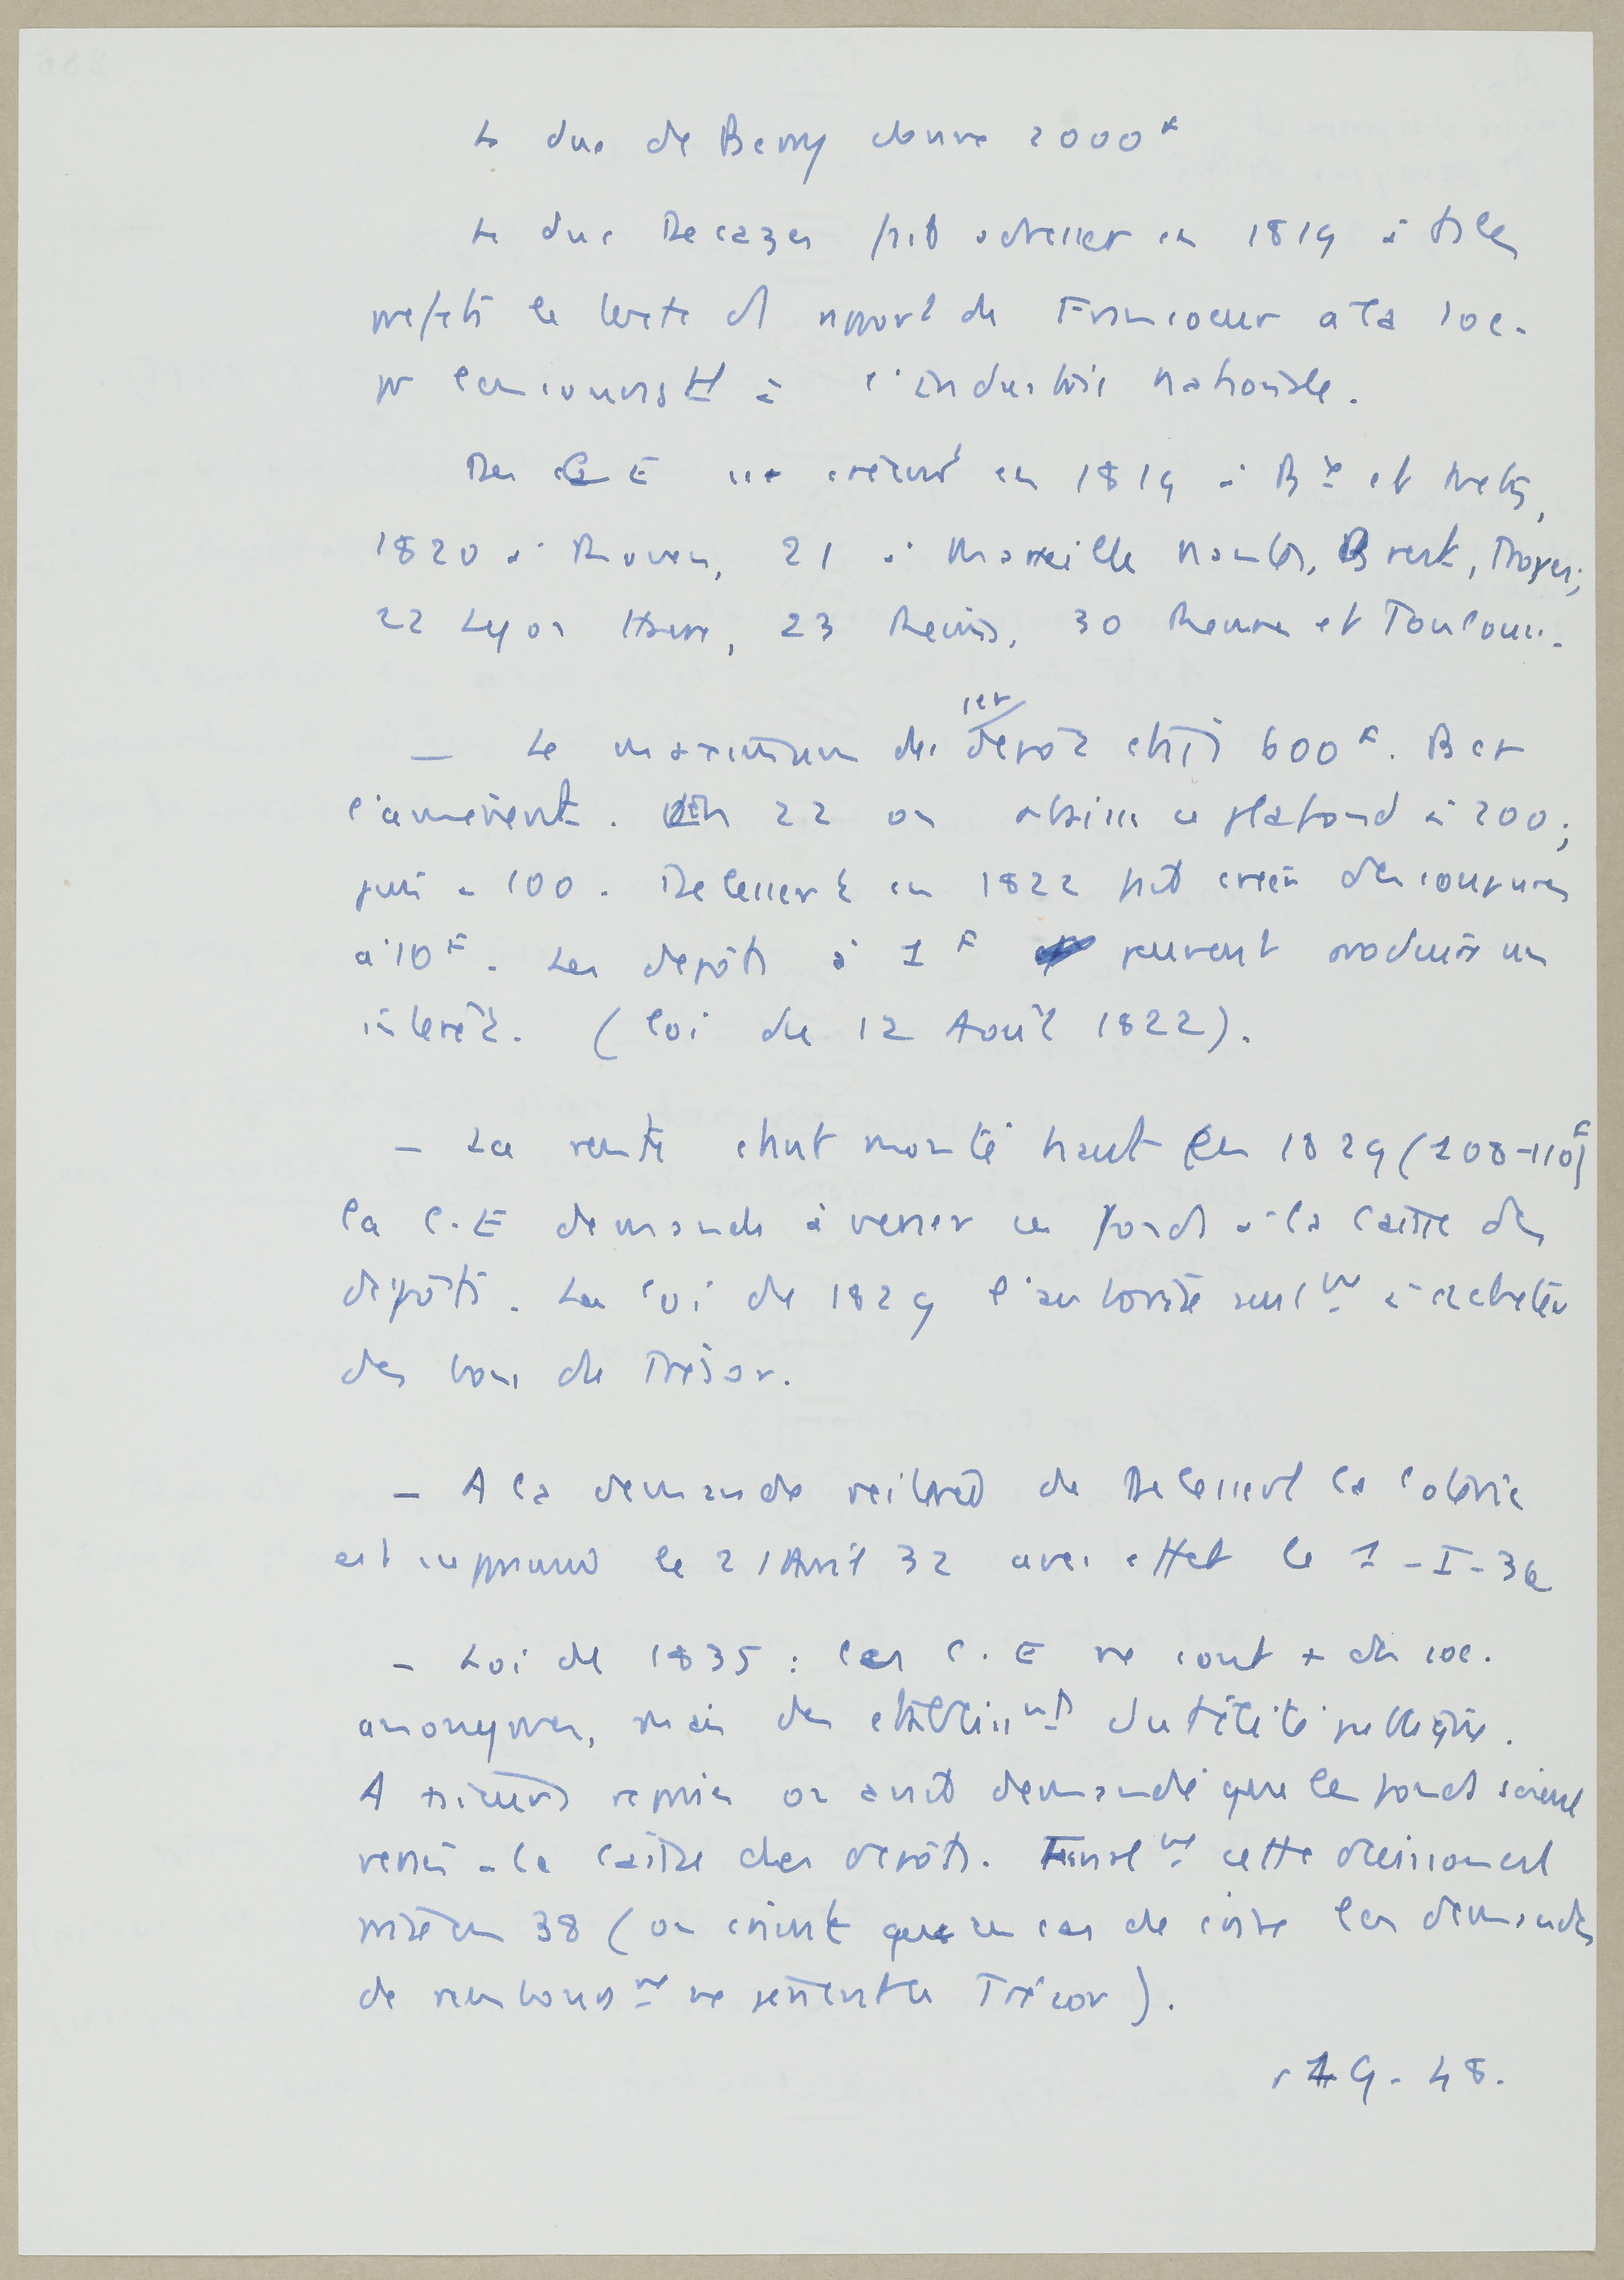 Le duc de Berry donne 2000 F
Le duc Decazes fait adresser en 1819 à ts les
préfets le texte d'1 rapport de Francoeur à la soc.
pr l'encouragt à l'industrie nationale.
Des C E st créées en 1819 à Bx et Metz,
1820 à Rouen, 21 à Marseille Nantes, Brest, Troyes;
22 Lyon Havre, 23 Reims, 30 Rennes et Toulouse.
— Le maximum des 1er dépôt était 600 F. Bcr
l'amenèrent. En 22 on abaisse ce plafond à 200;
puis à 100. Delessert en 1822 fait créer des coupures
à 10 F. Les dépôts à 1 F peuvent produire un
intérêt. (loi du 12 Août 1822).
— La rente étant monté haut en 1829 (108-110 F)
la C.E demande à verser ses fonds à la Caisse des
dépôts. La loi de 1829 l'autorise seult à acheter
des bons du Trésor.
— A la demande réitérée de Delessert la loterie
est supprimée le 21 Avril 32 avec effet le 1-I-36
— Loi de 1835 : les C.E ne sont + des soc.
anonymes, mais des établissnts d'utilité publique.
A plusieurs reprises on avait demandé que les fonds soient
versés à la Caisse des dépôts. Finalt cette décision est
prise en 38 (on craint qu'en cas de crise les demandes
de rembourst ne gênent le Trésor).
49-48.